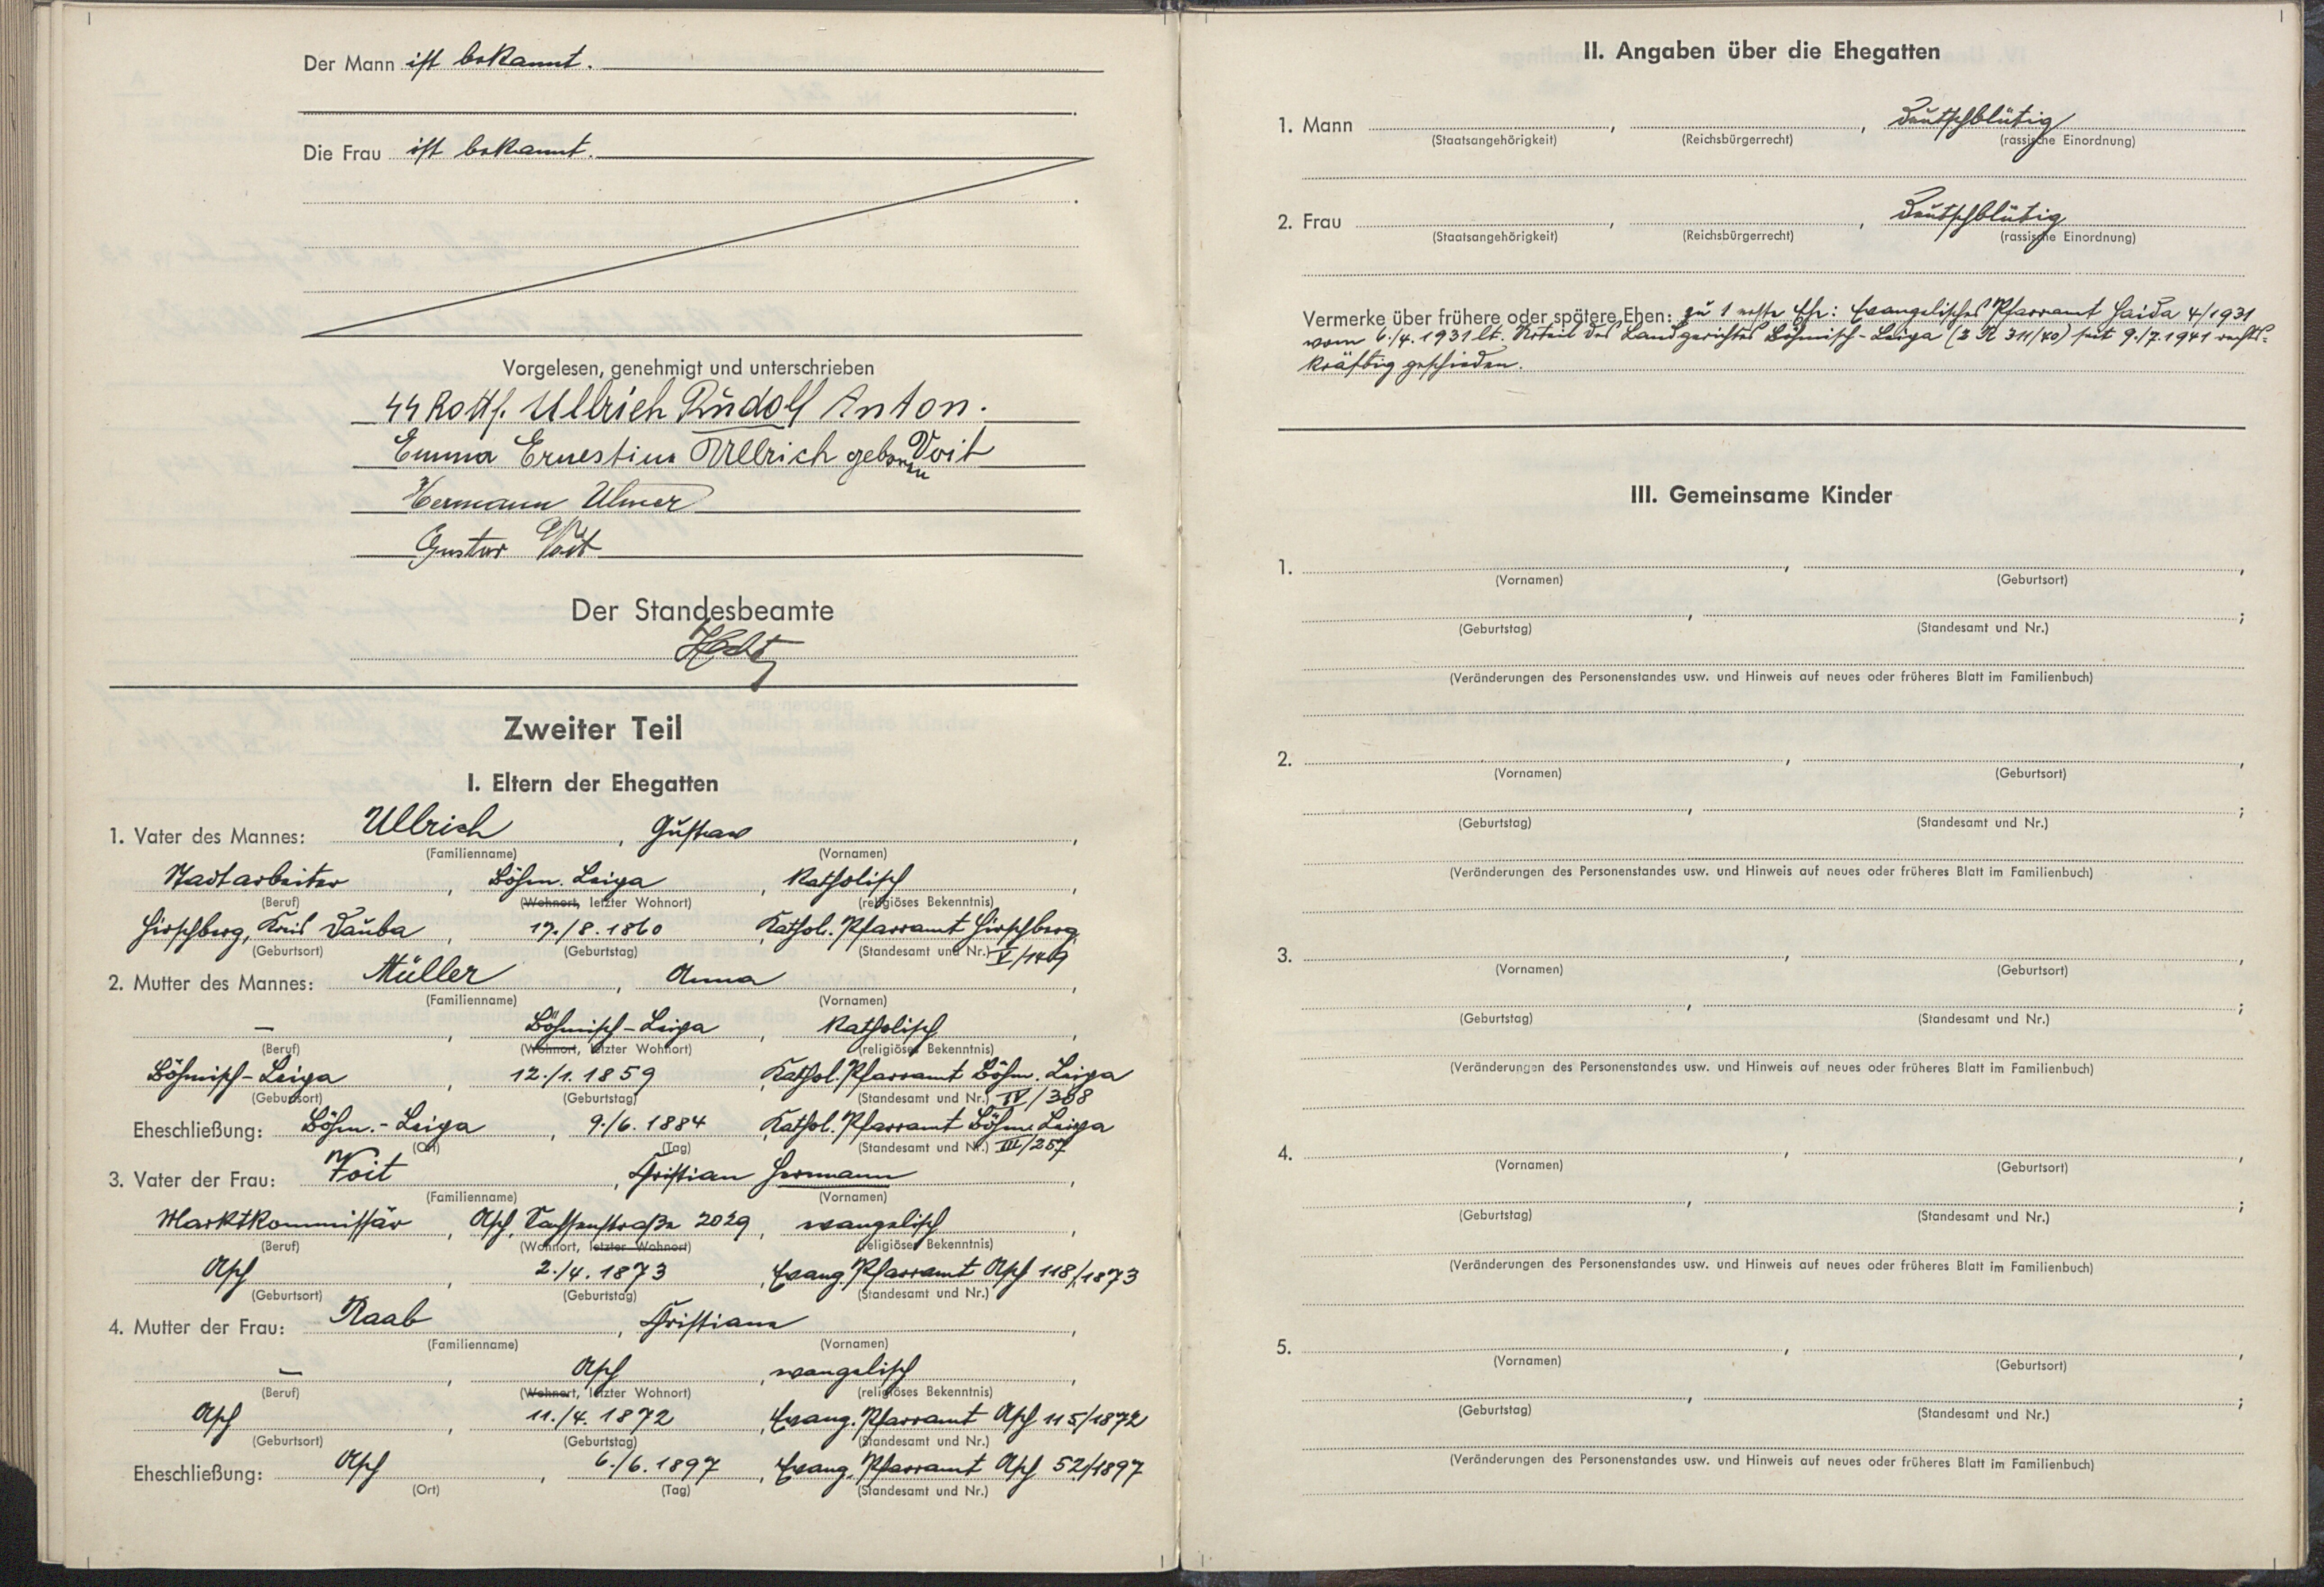 Der Mann ist bekannt.
Die Frau ist bekannt.
Vorgelesen, genehmigt und unterschrieben
SS Rottf. Ullrich Rudolf Anton.
Emma Ernestine Ullrich geboren Voit
Hermann Ulmer
Gustav Voit
Der Standesbeamte
Zweiter Teil
I. Eltern der Ehegatten
1. Vater des Mannes: Ullrich, Gustav,
(Familienname) (Vornamen)
Stadtarbeiter, Böhm. Leipa, katholisch,
(Beruf) (Wohnort, letzter Wohnort) (religiöses Bekenntnis)
Hirschberg, Kreis Dauba, 17./8. 1860, Kathol. Pfarramt Hirschberg
(Geburtsort) (Geburtstag) (Standesamt und Nr.) V/1469
2. Mutter des Mannes: Müller, Anna,
(Familienname) (Vornamen)
—, Böhmisch-Leipa, katholisch,
(Beruf) (Wohnort, letzter Wohnort) (religiöses Bekenntnis)
Böhmisch-Leipa, 12./1. 1859, Kathol. Pfarramt Böhm. Leipa
(Geburtsort) (Geburtstag) (Standesamt und Nr.) IV/368
Eheschließung: Böhm.-Leipa, 9./6. 1884, Kathol. Pfarramt Böhm. Leipa
(Ort) (Tag) (Standesamt und Nr.) III/257
3. Vater der Frau: Voit, Christian Hermann,
(Familienname) (Vornamen)
Marktkommissär, Asch, Sachsenstraße 2029, evangelisch,
(Beruf) (Wohnort, letzter Wohnort) (religiöses Bekenntnis)
Asch, 2./4. 1873, Evang. Pfarramt Asch 118/1873
(Geburtsort) (Geburtstag) (Standesamt und Nr.)
4. Mutter der Frau: Raab, Christiane,
(Familienname) (Vornamen)
—, Asch, evangelisch,
(Beruf) (Wohnort, letzter Wohnort) (religiöses Bekenntnis)
Asch, 11./4. 1872, Evang. Pfarramt Asch 115/1872
(Geburtsort) (Geburtstag) (Standesamt und Nr.)
Eheschließung: Asch, 6./6. 1897, Evang. Pfarramt Asch 52/1897
(Ort) (Tag) (Standesamt und Nr.)
II. Angaben über die Ehegatten
1. Mann , , Deutschblütig
(Staatsangehörigkeit) (Reichsbürgerrecht) (rassische Einordnung)
2. Frau , , Deutschblütig
(Staatsangehörigkeit) (Reichsbürgerrecht) (rassische Einordnung)
Vermerke über frühere oder spätere Ehen: zu 1 erste Ehe: Evangelisches Pfarramt Haida 4/1931
vom 6./4. 1931 lt. Urteil des Landgerichtes Böhmisch-Leipa (2 R 311/40) seit 9./7. 1941 rechts-
kräftig geschieden.
III. Gemeinsame Kinder
1. , ,
(Vornamen) (Geburtsort)
, ;
(Geburtstag) (Standesamt und Nr.)
(Veränderungen des Personenstandes usw. und Hinweis auf neues oder früheres Blatt im Familienbuch)
2. , ,
(Vornamen) (Geburtsort)
, ;
(Geburtstag) (Standesamt und Nr.)
(Veränderungen des Personenstandes usw. und Hinweis auf neues oder früheres Blatt im Familienbuch)
3. , ,
(Vornamen) (Geburtsort)
, ;
(Geburtstag) (Standesamt und Nr.)
(Veränderungen des Personenstandes usw. und Hinweis auf neues oder früheres Blatt im Familienbuch)
4. , ,
(Vornamen) (Geburtsort)
, ;
(Geburtstag) (Standesamt und Nr.)
(Veränderungen des Personenstandes usw. und Hinweis auf neues oder früheres Blatt im Familienbuch)
5. , ,
(Vornamen) (Geburtsort)
, ;
(Geburtstag) (Standesamt und Nr.)
(Veränderungen des Personenstandes usw. und Hinweis auf neues oder früheres Blatt im Familienbuch)